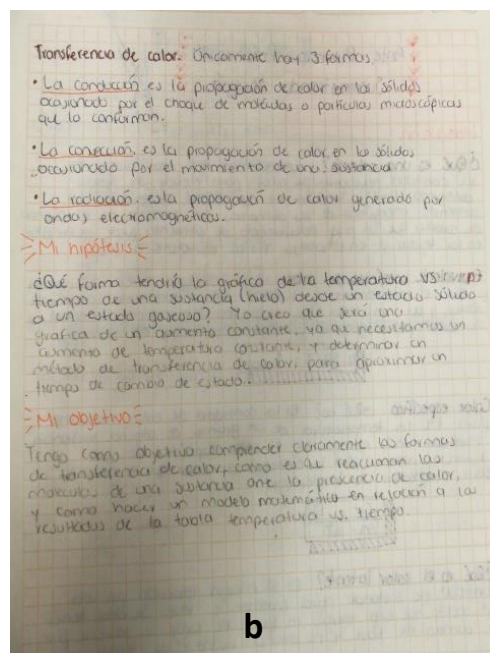 Transferencia de calor. Únicamente hay 3 formas
• La conducción es la propagación de calor en los sólidos
ocasionado por el choque de moléculas o partículas microscópicas
que lo conforman.
• La convección, es la propagación de calor en los sólidos
ocasionado por el movimiento de una sustancia
• La radiación, es la propagación de calor generado por
ondas electromagnéticas.
Mi hipótesis
¿Qué forma tendría la gráfica de la temperatura vs
tiempo de una sustancia (hielo) desde un estado sólido
a un estado gaseoso? Yo creo que será una
grafica de un aumento constante, ya que necesitamos un
aumento de temperatura constante, y determinar un
método de transferencia de calor, para aproximar un
tiempo de cambio de estado.
Mi objetivo
Tengo como objetivo comprender claramente las formas
de transferencia de calor, como es que reaccionan las
moleculas de una sustancia ante la presencia de calor,
y como hacer un modelo matemático en relación a los
resultados de la tabla temperatura vs. tiempo.
b